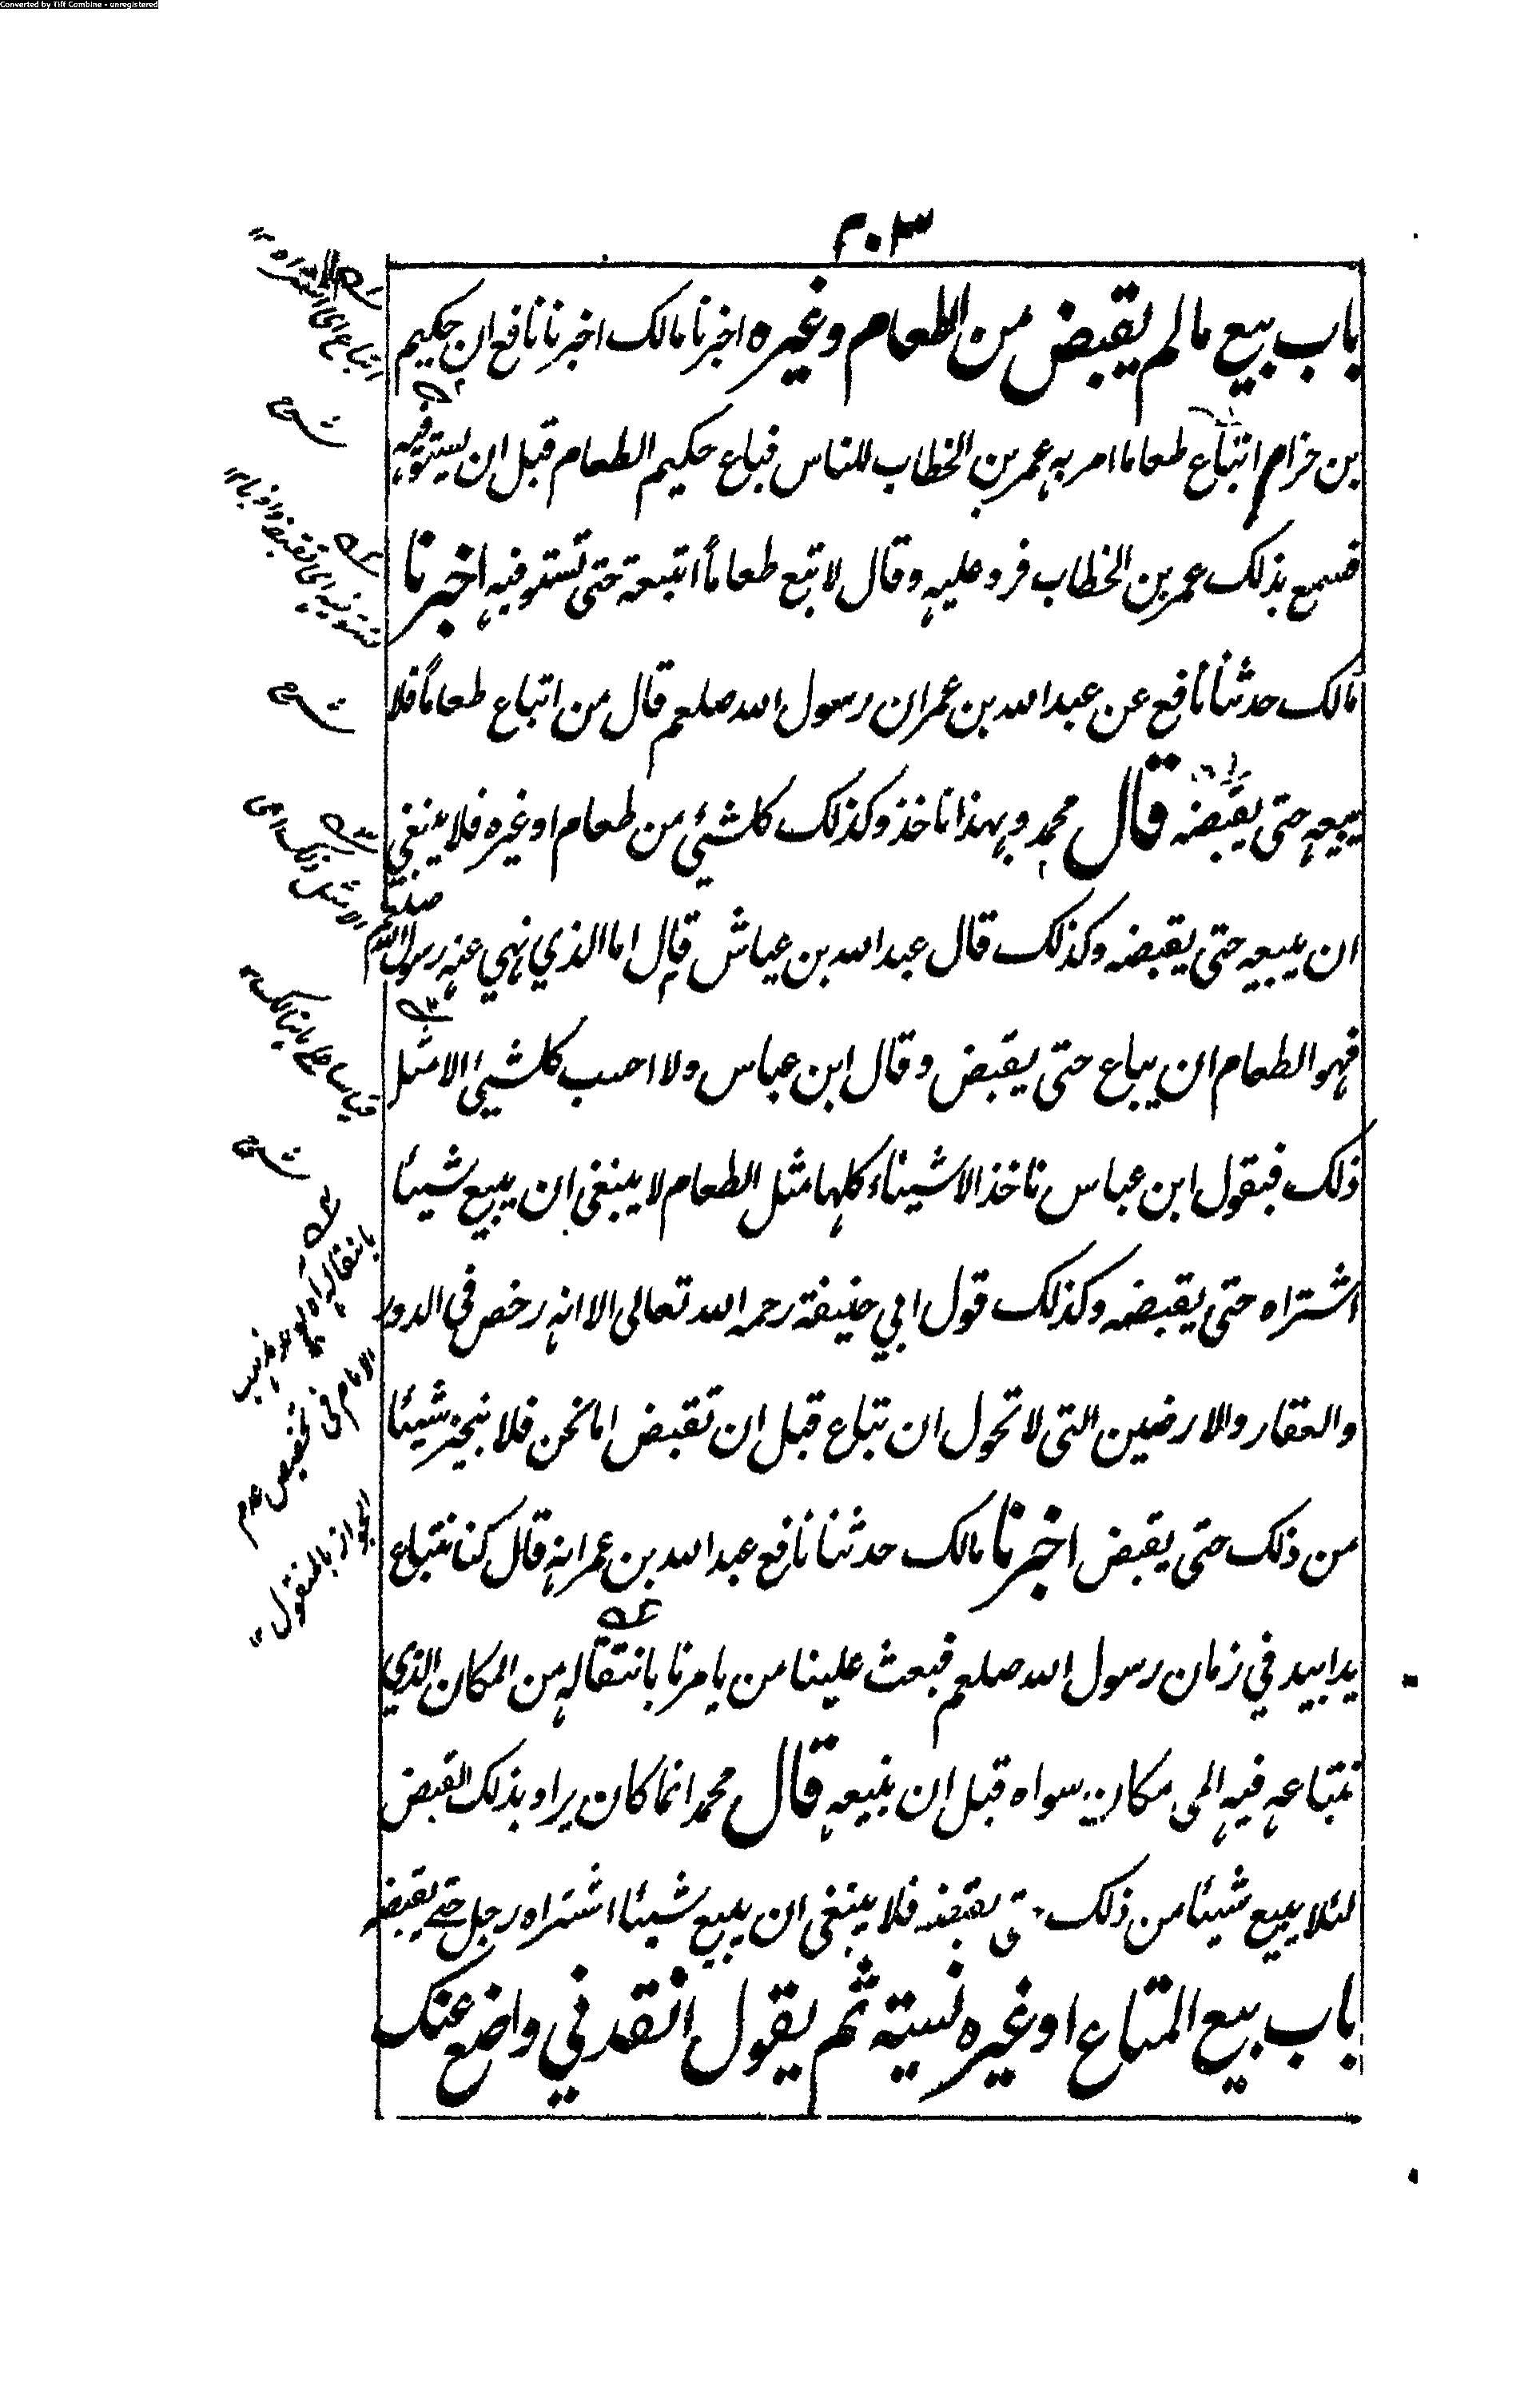 Converted by Tiff Combine - unregistered
٢٠٣
باب بيع مالم يقبض من الطعام وغيره اخبرنا مالک اخبرنا نافع ان حکيم
بن حزام ابتاع طعاما امر به عمر بن الخطاب للناس فباع حکيم الطعام قبل ان يستوفيه
فسمع بذلک عمر بن الخطاب فرد عليه وقال لا تبع طعاماً ابتعته حتى تستوفيه اخبرنا
مالک حدثنا نافع عن عبد الله بن عمر ان رسول الله صلعم قال من ابتاع طعاماً فلا
يبيعه حتى يقبضه قال محمد وبهذا ناخذ وکذلک کل شيئ من طعام او غيره فلا ينبغي
ان يبيعه حتى يقبضه وکذلک قال عبد الله بن عباس قال اما الذي نهي عنه رسول الله صلعم
فهو الطعام ان يباع حتى يقبض وقال ابن عباس ولا احسب کل شيئ الا مثل
ذلک فبقول ابن عباس ناخذ الاشيناء کلها مثل الطعام لا ينبغي ان يبيع شيئا
اشتراه حتى يقبضه وکذلک قول ابي حنيفة رحمه الله تعالى الا انه رخص في الدور
والعقار والارضين التى لا تحول ان تباع قبل ان تقبض اما نحن فلا نجيز شيئا
من ذلک حتى يقبض اخبرنا مالک حدثنا نافع عبد الله بن عمر انه قال کنا نبتاع
يدابيد في زمان رسول الله صلعم فبعث علينا من يامرنا بانتقاله من المکان الذي
نبتاعه فيه الى مکان سواه قبل ان نبيعه قال محمد انما کان يراد بذلک القبض
لئلا يبيع شيئا من ذلک حتى يقبضه فلا ينبغى ان يبيع شيئا اشتراه رجل حتے يقبضه
باب بيع المتاع او غيره نسية ثم يقول انقدني واضع عنک
ابتاع اى اشتراه
شرح
تستوفيه اى تقبضه
شرح
الا مثل ذلک اى
شرح
الامام فى تخصيص عدم
الجواز بالمنقول